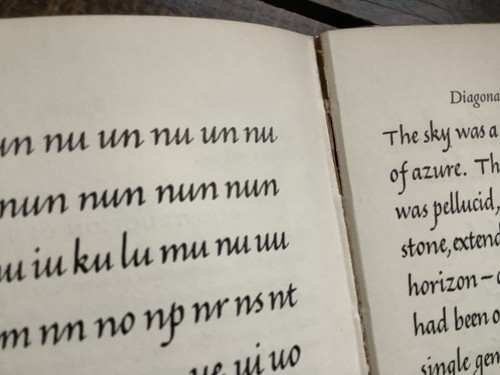 un nu un nu un nu
nun nun nun nun
nu iu ku lu mu nu uu
m nn no np nr ns nt
ue ui uo
Diagona
The sky was a
of azure. Th
was pellucid,
stone, extend
horizon – 
had been o
single gem